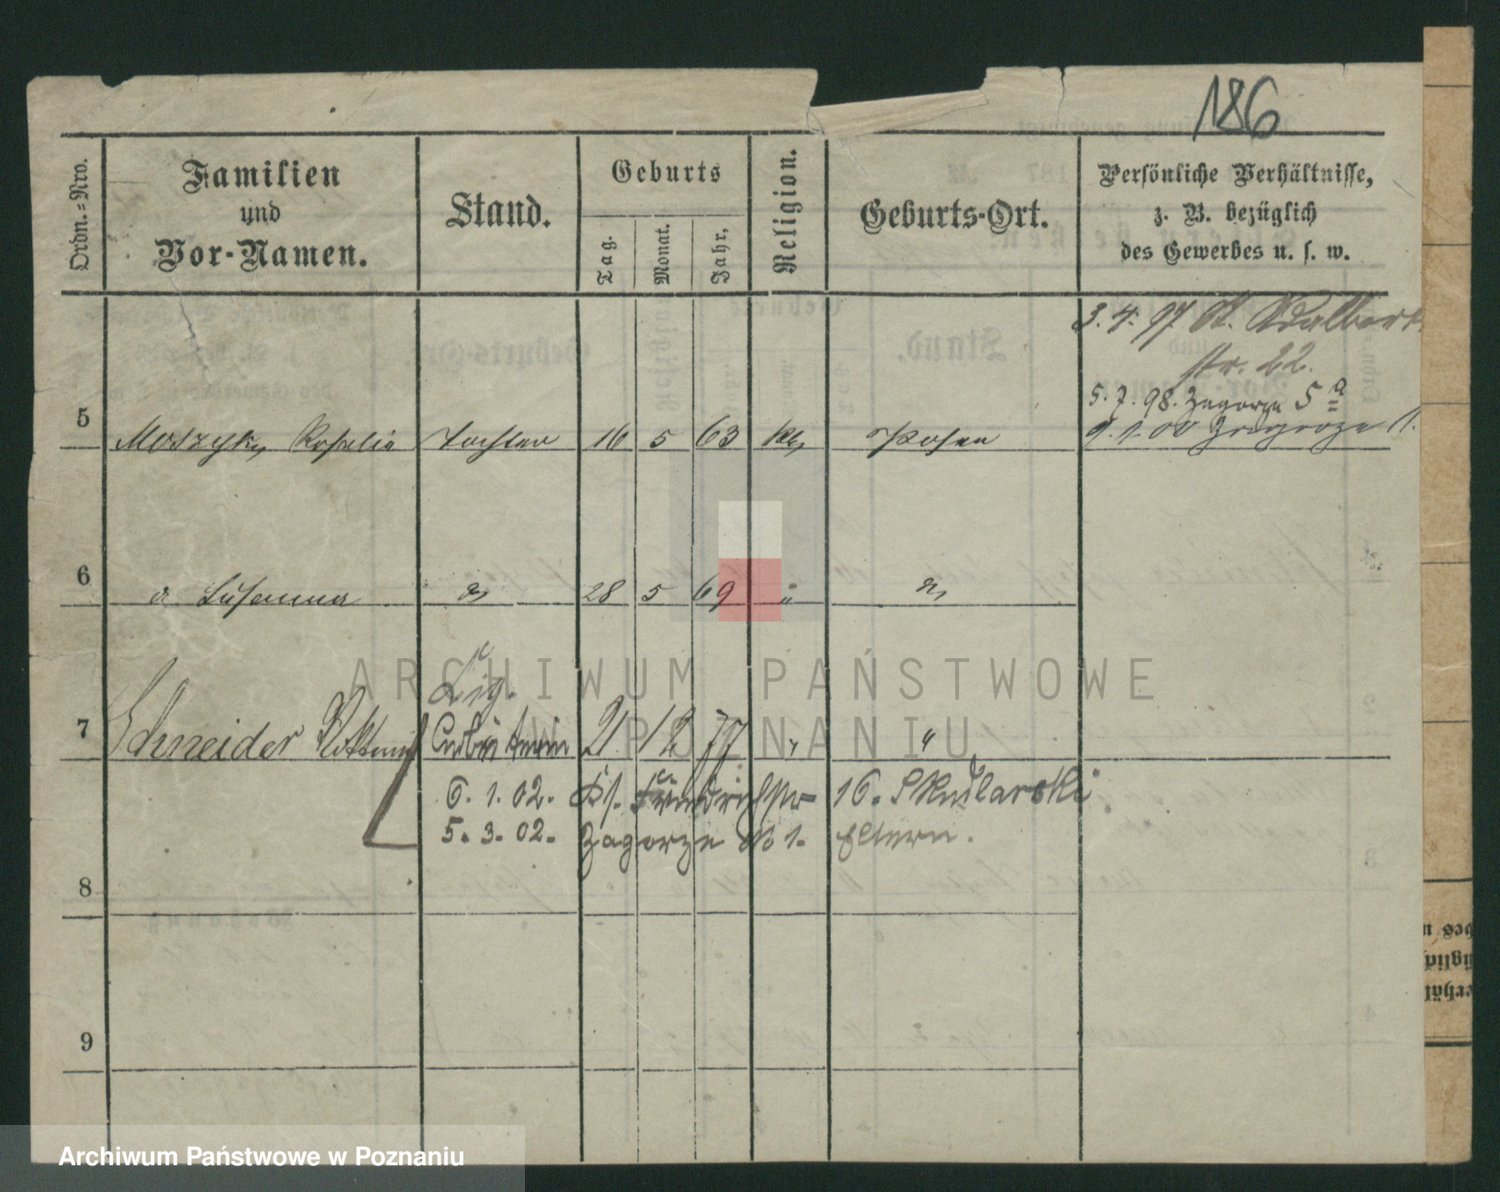 186
Ordn.-Nro.
Familien
und
Vor-Namen.
Stand.
Geburts
Tag.
Monat.
Jahr.
Religion.
Geburts-Ort.
Persönliche Verhältnisse,
z. B. bezüglich
des Gewerbes u. s. w.
3. 4. 97 St. Adalbert
str. 22.
5. 7. 98. Zagorze 5 a
9. 1. 00 Zagorze 1.
5 Rosalie Tochter 16 5 63 kth Posen
6 Susanna 28 5 69 "
7 Schneider Lig. Arbeiterin 21. 12 77 " "
6. 1. 02. 16. Skudlarski
5. 3. 02. Zagorze No 1. Eltern.
8
9
ARCHIWUM PAŃSTWOWE
W POZNANIU
Archiwum Państwowe w Poznaniu